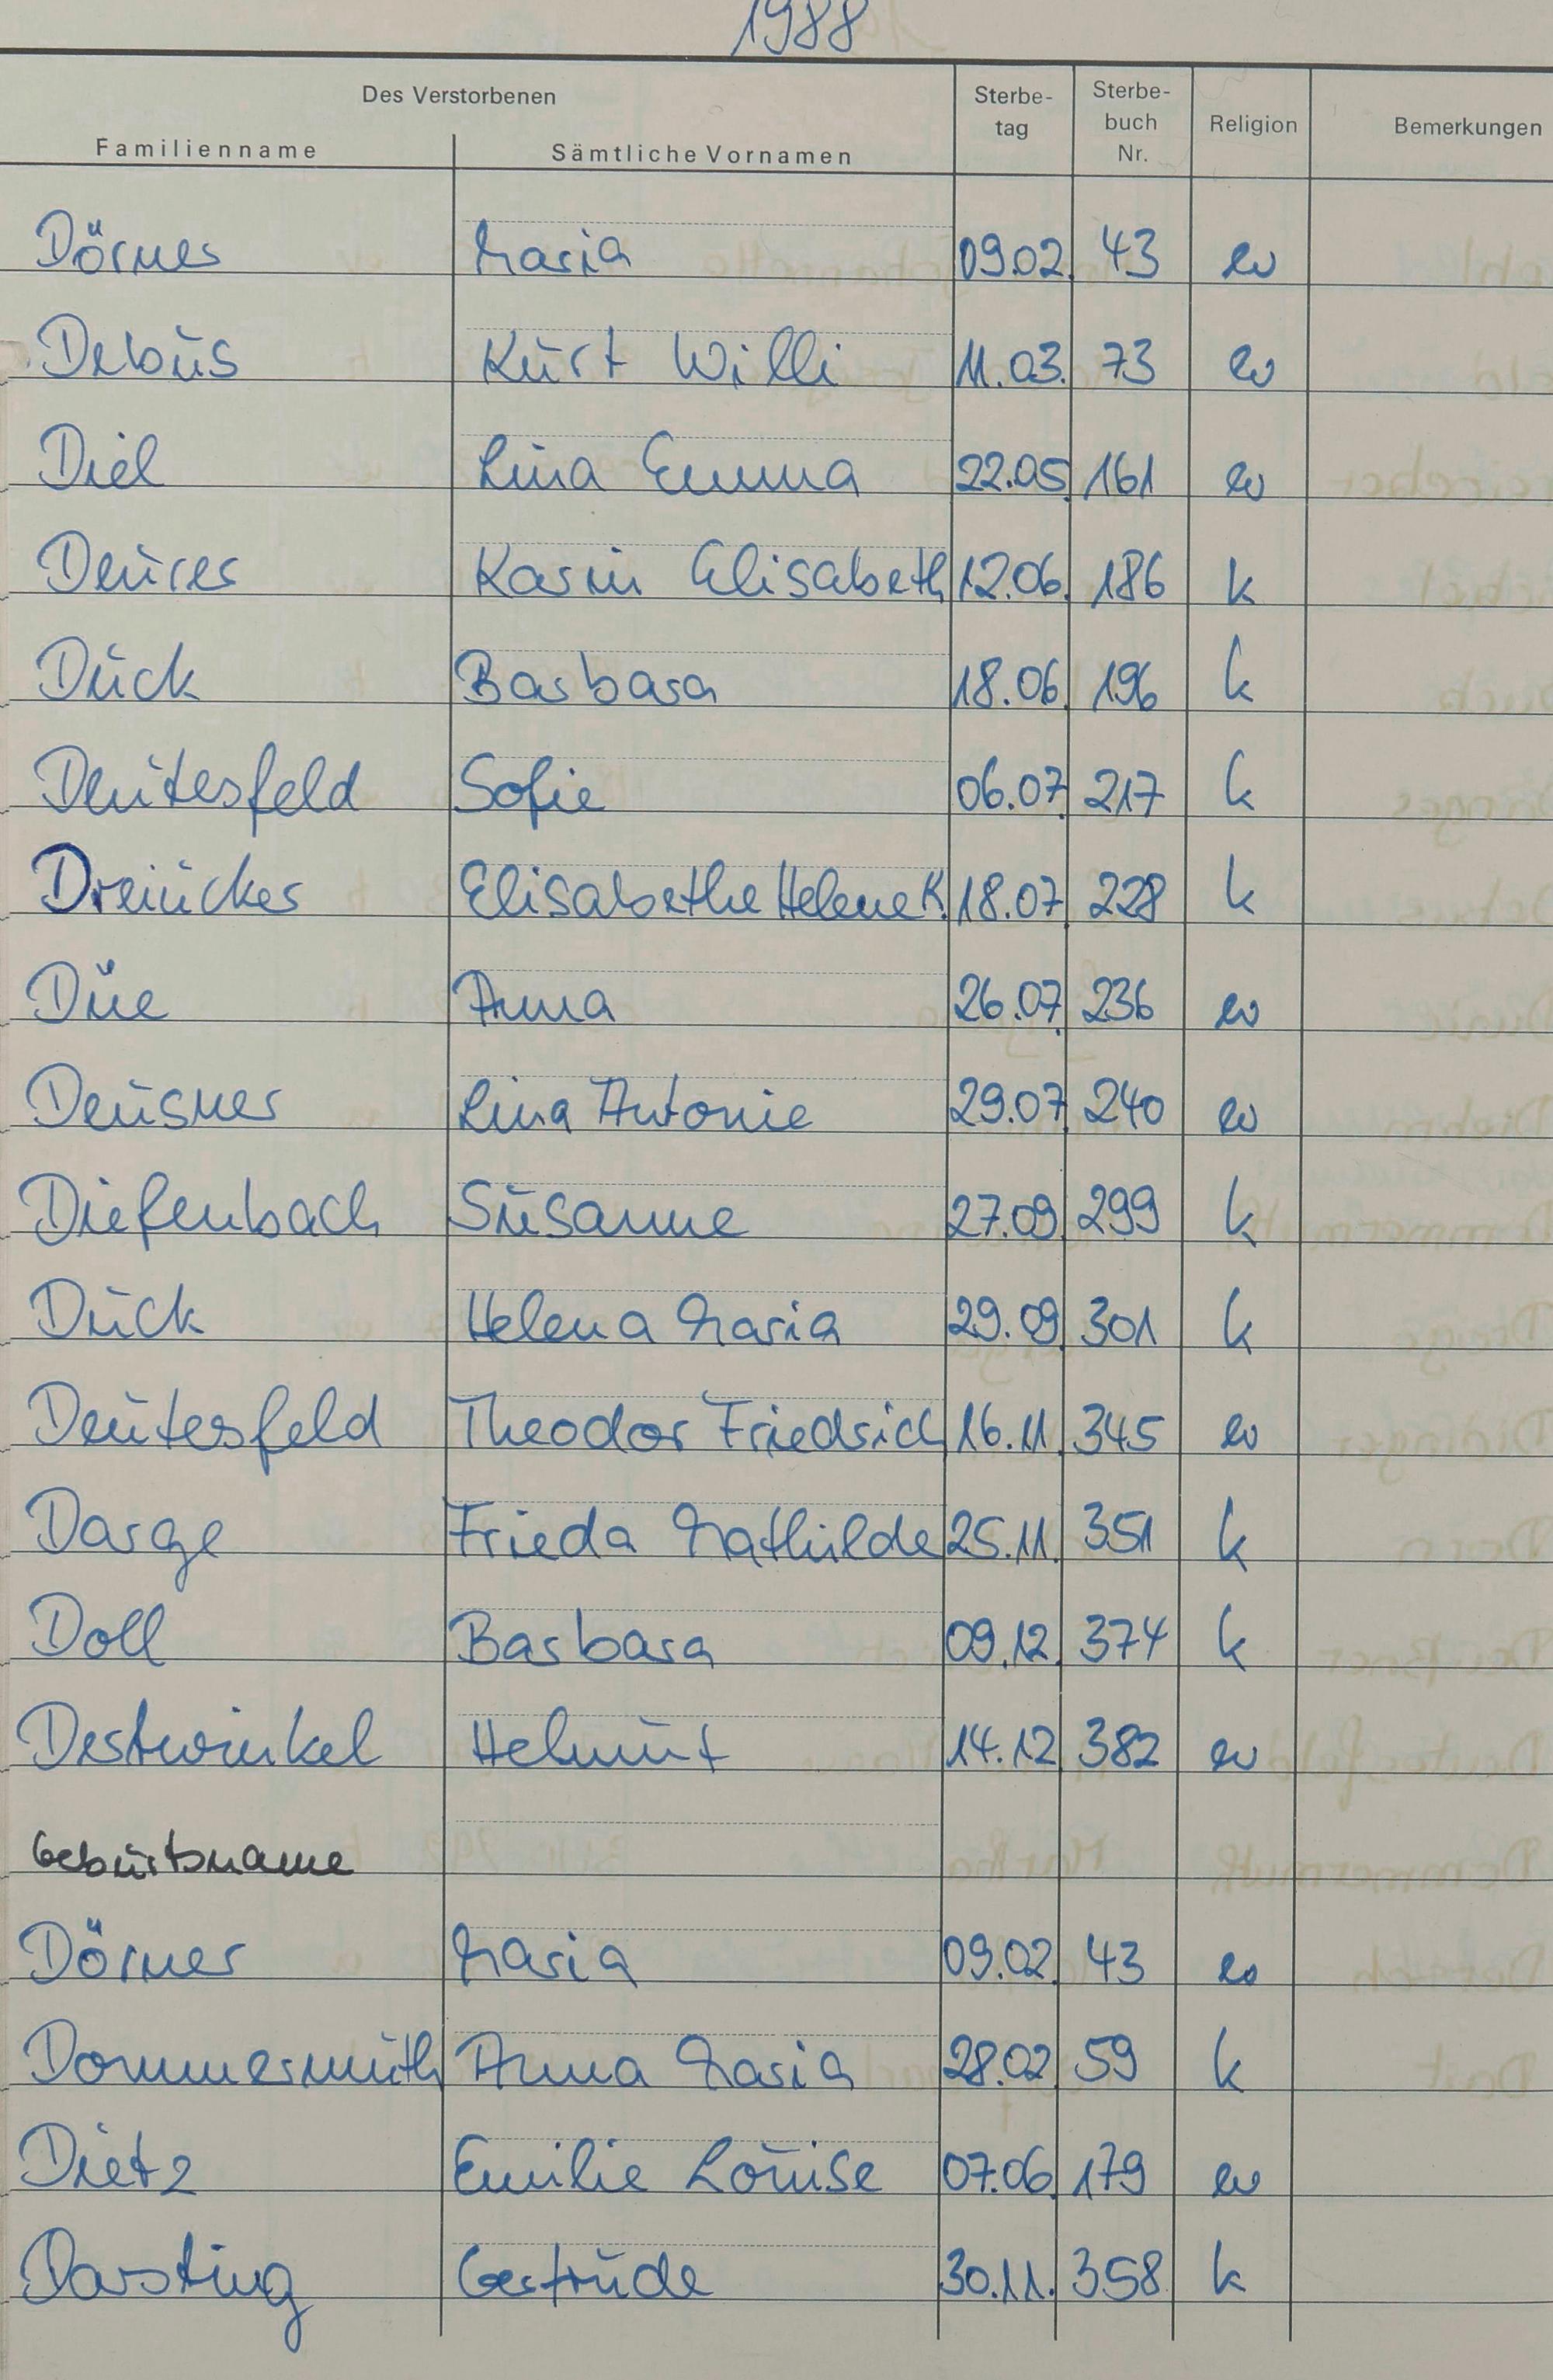 1988
Des Verstorbenen
Familienname Sämtliche Vornamen Sterbe-tag Sterbe-buch Nr. Religion Bemerkungen
Dörner Maria 09.02. 43 ev
Debus Kurt Willi 11.03. 73 ev
Diel Lina Emma 22.05 161 ev
Deurer Karin Elisabeth 12.06. 186 k
Duck Barbara 18.06. 196 k
Deutesfeld Sofie 06.07. 217 k
Dreiucker Elisabethe Helene K. 18.07. 228 k
Düe Anna 26.07. 236 ev
Deusner Lina Antonie 29.07. 240 ev
Diefenbach Susanne 27.09. 299 k
Duck Helena Maria 29.09. 301 k
Deutesfeld Theodor Friedrich 16.11. 345 ev
Darge Frieda Mathilde 25.11. 351 k
Doll Barbara 09.12. 374 k
Destwinkel Helmut 14.12. 382 ev
Geburtsname
Dörner Maria 09.02. 43 ev
Dommermuth Anna Maria 28.02. 59 k
Dietz Emilie Louise 07.06. 179 ev
Darsting Gertrude 30.11. 358 k